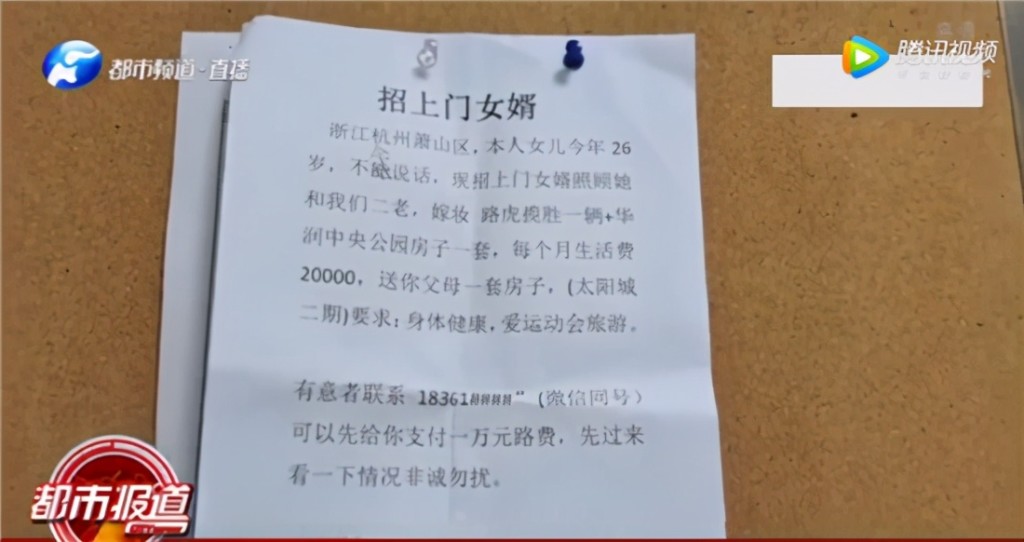 都市频道-直播
腾讯视频
招上门女婿
浙江杭州萧山区,本人女儿今年 26
岁, 不能说话, 现招上门女婿照顾她
和我们二老, 嫁妆 路虎揽胜一辆+华
润中央公园房子一套, 每个月生活费
20000, 送你父母一套房子, (太阳城
二期)要求: 身体健康, 爱运动会旅游。
有意者联系 18361 (微信同号)
可以先给你支付一万元路费, 先过来
看一下情况非诚勿扰。
都市报道